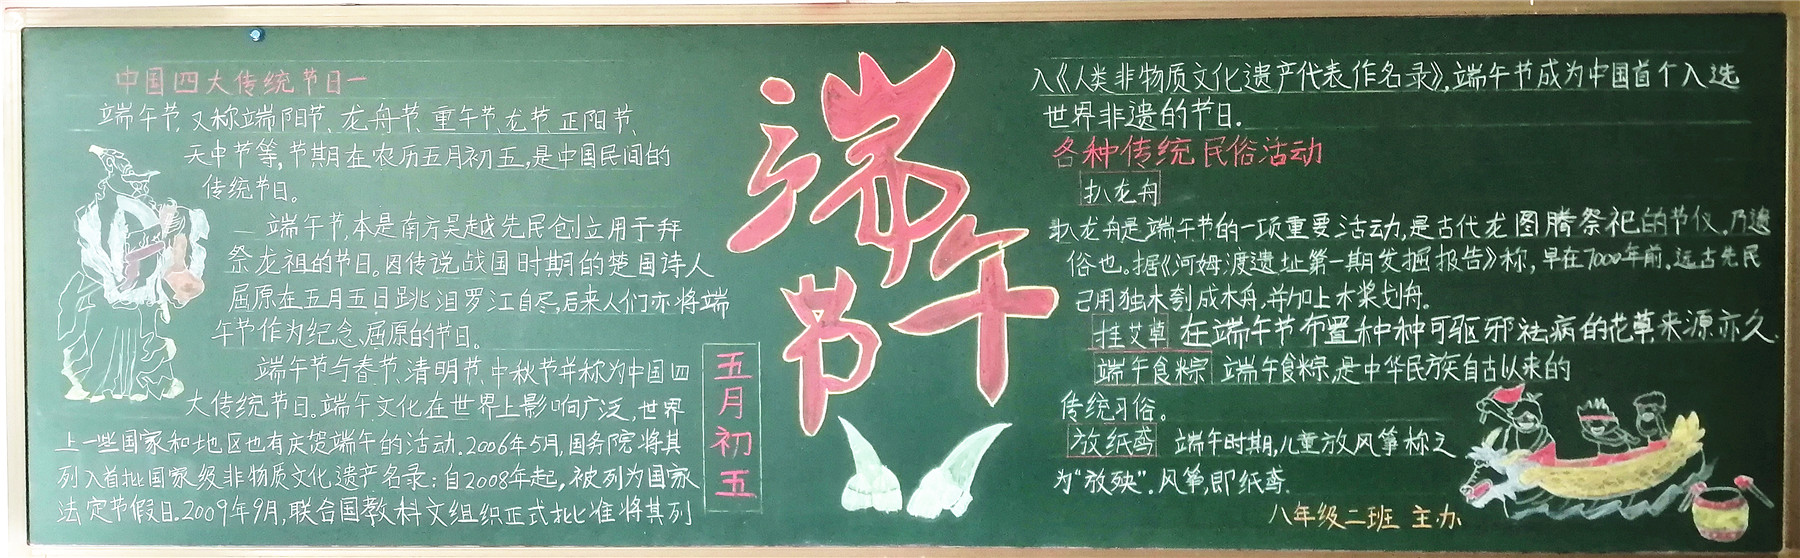 中国四大传统节日一
端午节,又称端阳节、龙舟节、重午节、龙节、正阳节、
天中节等,节期在农历五月初五,是中国民间的
传统节日。
端午节,本是南方吴越先民创立用于拜
祭龙祖的节日。因传说战国时期的楚国诗人
屈原在五月五日跳汨罗江自尽,后来人们亦将端
午节作为纪念屈原的节日。
端午节与春节、清明节、中秋节并称为中国四
大传统节日。端午文化在世界上影响广泛,世界
上一些国家和地区也有庆贺端午的活动.2006年5月,国务院将其
列入首批国家级非物质文化遗产名录;自2008年起,被列为国家
法定节假日.2009年9月,联合国教科文组织正式批准将其列
五月初五
端午节
入《人类非物质文化遗产代表作名录》,端午节成为中国首个入选
世界非遗的节日.
各种传统民俗活动
扒龙舟
扒龙舟是端午节的一项重要活动,是古代龙图腾祭祀的节仪,乃遗
俗也。据《河姆渡遗址第一期发掘报告》称,早在7000年前,远古先民
已用独木刳成木舟,并加上木桨划舟。
挂艾草 在端午节布置种种可驱邪祛病的花草,来源亦久.
端午食粽 端午食粽,是中华民族自古以来的
传统习俗。
放纸鸢 端午时期,儿童放风筝称之
为“放殃”.风筝,即纸鸢.
八年级二班 主办